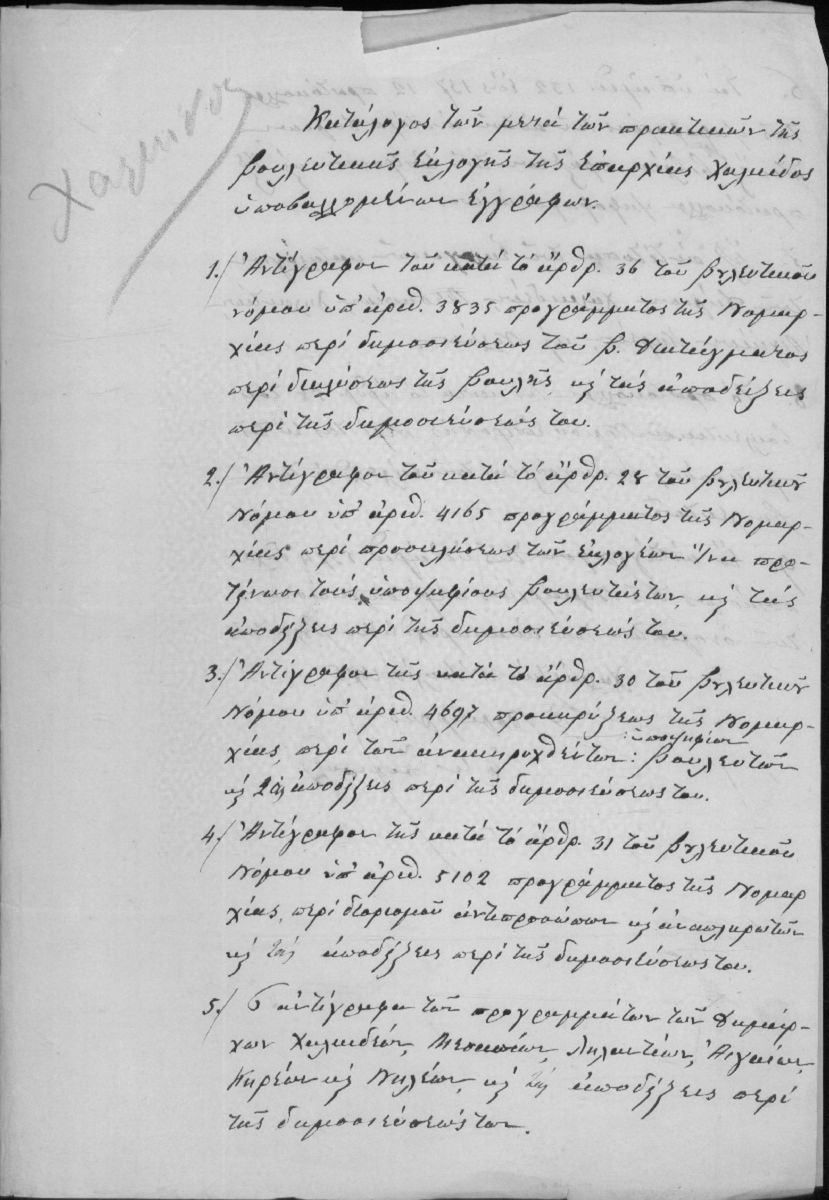 Χαλκίδος
Κατάλογος τῶν μετὰ τῶν πρακτικῶν τῆς
βουλευτικῆς ἐκλογῆς τῆς ἐπαρχίας Χαλκίδος
ὑποβαλλομένων ἐγγράφων.
1./ Ἀντίγραφον τοῦ κατὰ τὸ ἄρθρ. 36 τοῦ βουλευτικοῦ
νόμου ὑπ' ἀριθ. 3835 προγράμματος τῆς Νομαρ-
χίας περὶ δημοσιεύσεως τοῦ β. διατάγματος
περὶ διαλύσεως τῆς βουλῆς, κ τὰς ἀποδείξεις
περὶ τῆς δημοσιεύσεώς του.
2./ Ἀντίγραφον τοῦ κατὰ τὸ ἄρθρ. 28 τοῦ βουλευτικοῦ
Νόμου ὑπ' ἀριθ. 4165 προγράμματος τῆς Νομαρ-
χίας περὶ προσκλήσεως τῶν ἐκλογέων ἵνα προ-
τείνωσι τοὺς ὑποψηφίους βουλευτάς των, κ τὰς
ἀποδείξεις περὶ τῆς δημοσιεύσεώς του.
3./ Ἀντίγραφον τῆς κατὰ τὸ ἄρθρ. 30 τοῦ βουλευτικοῦ
Νόμου ὑπ' ἀριθ. 4697 προκηρύξεως τῆς Νομαρ-
χίας, περὶ τῶν ἀνακηρυχθέντων : ὑποψηφίων : βουλευτῶν
κ τὰς ἀποδείξεις περὶ τῆς δημοσιεύσεώς του.
4./ Ἀντίγραφον τῆς κατὰ τὸ ἄρθρ. 31 τοῦ βουλευτικοῦ
Νόμου ὑπ' ἀριθ. 5102 προγράμματος τῆς Νομαρ
χίας, περὶ διορισμοῦ ἀντιπροσώπων κ ἀναπληρωτῶν
κ τὰς ἀποδείξεις περὶ τῆς δημοσιεύσεώς του.
5./ 6 ἀντίγραφα τῶν προγραμμάτων τῶν Δημάρ-
χων Χαλκιδέων, Μεσαπίων, Ληλαντίων, Αἰγαίων,
Κηρέων κ Νηλέων, κ τὰς ἀποδείξεις περὶ
τῆς δημοσιεύσεώς των.